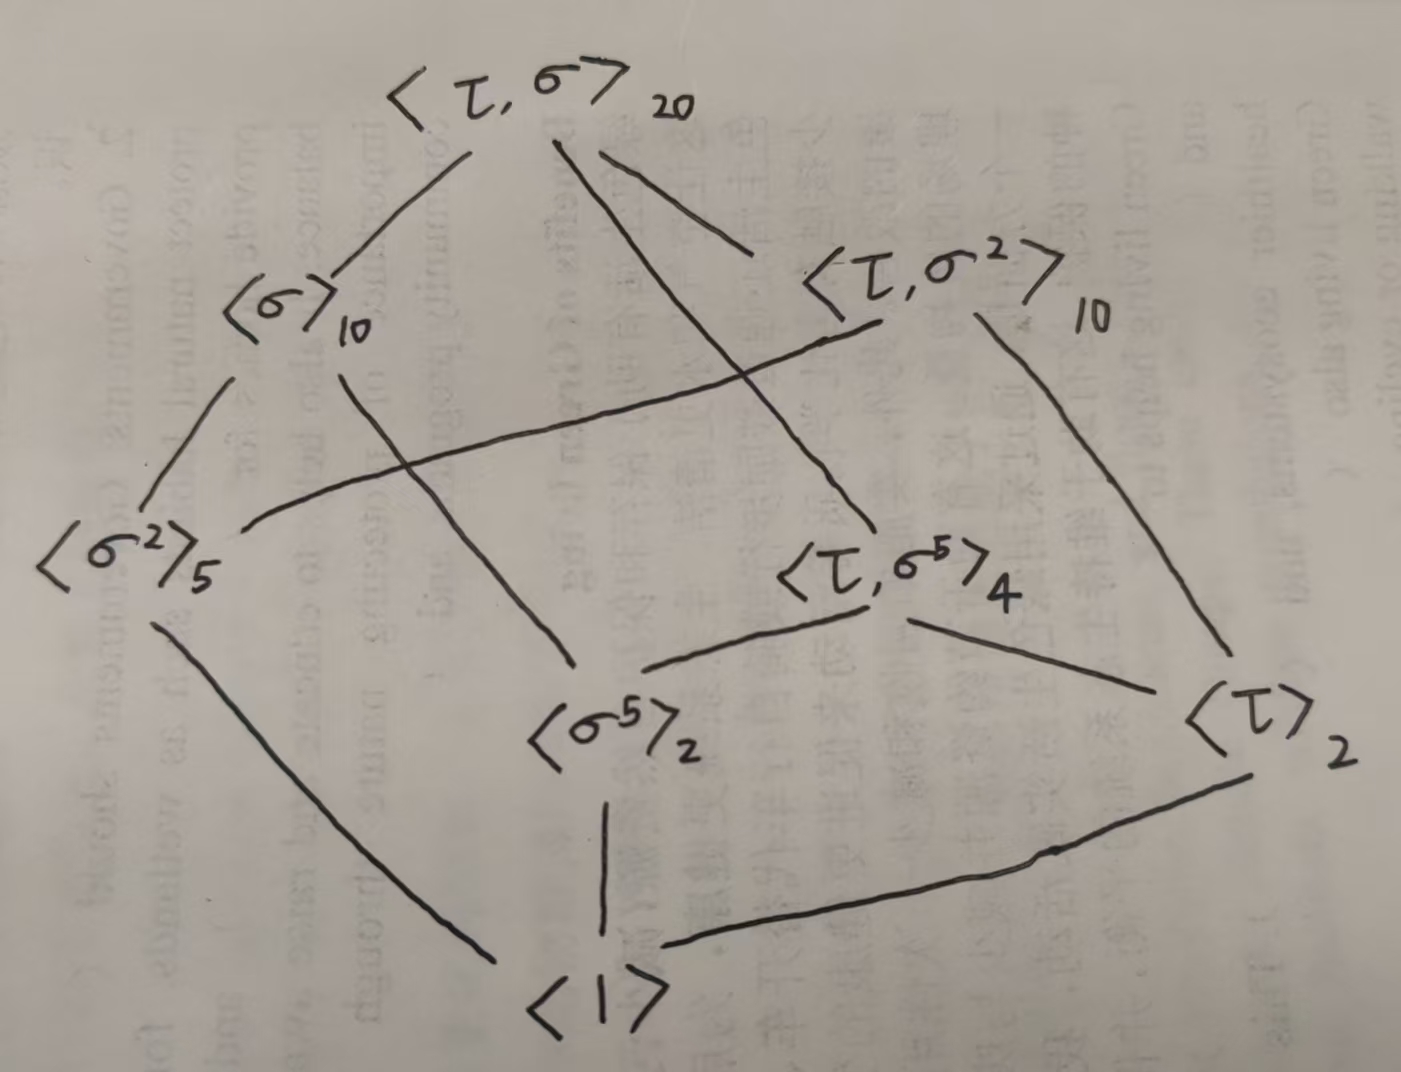 ⟨τ, σ⟩₂₀
⟨σ⟩₁₀
⟨τ, σ²⟩₁₀
⟨σ²⟩₅
⟨τ, σ⁵⟩₄
⟨σ⁵⟩₂
⟨τ⟩₂
⟨1⟩